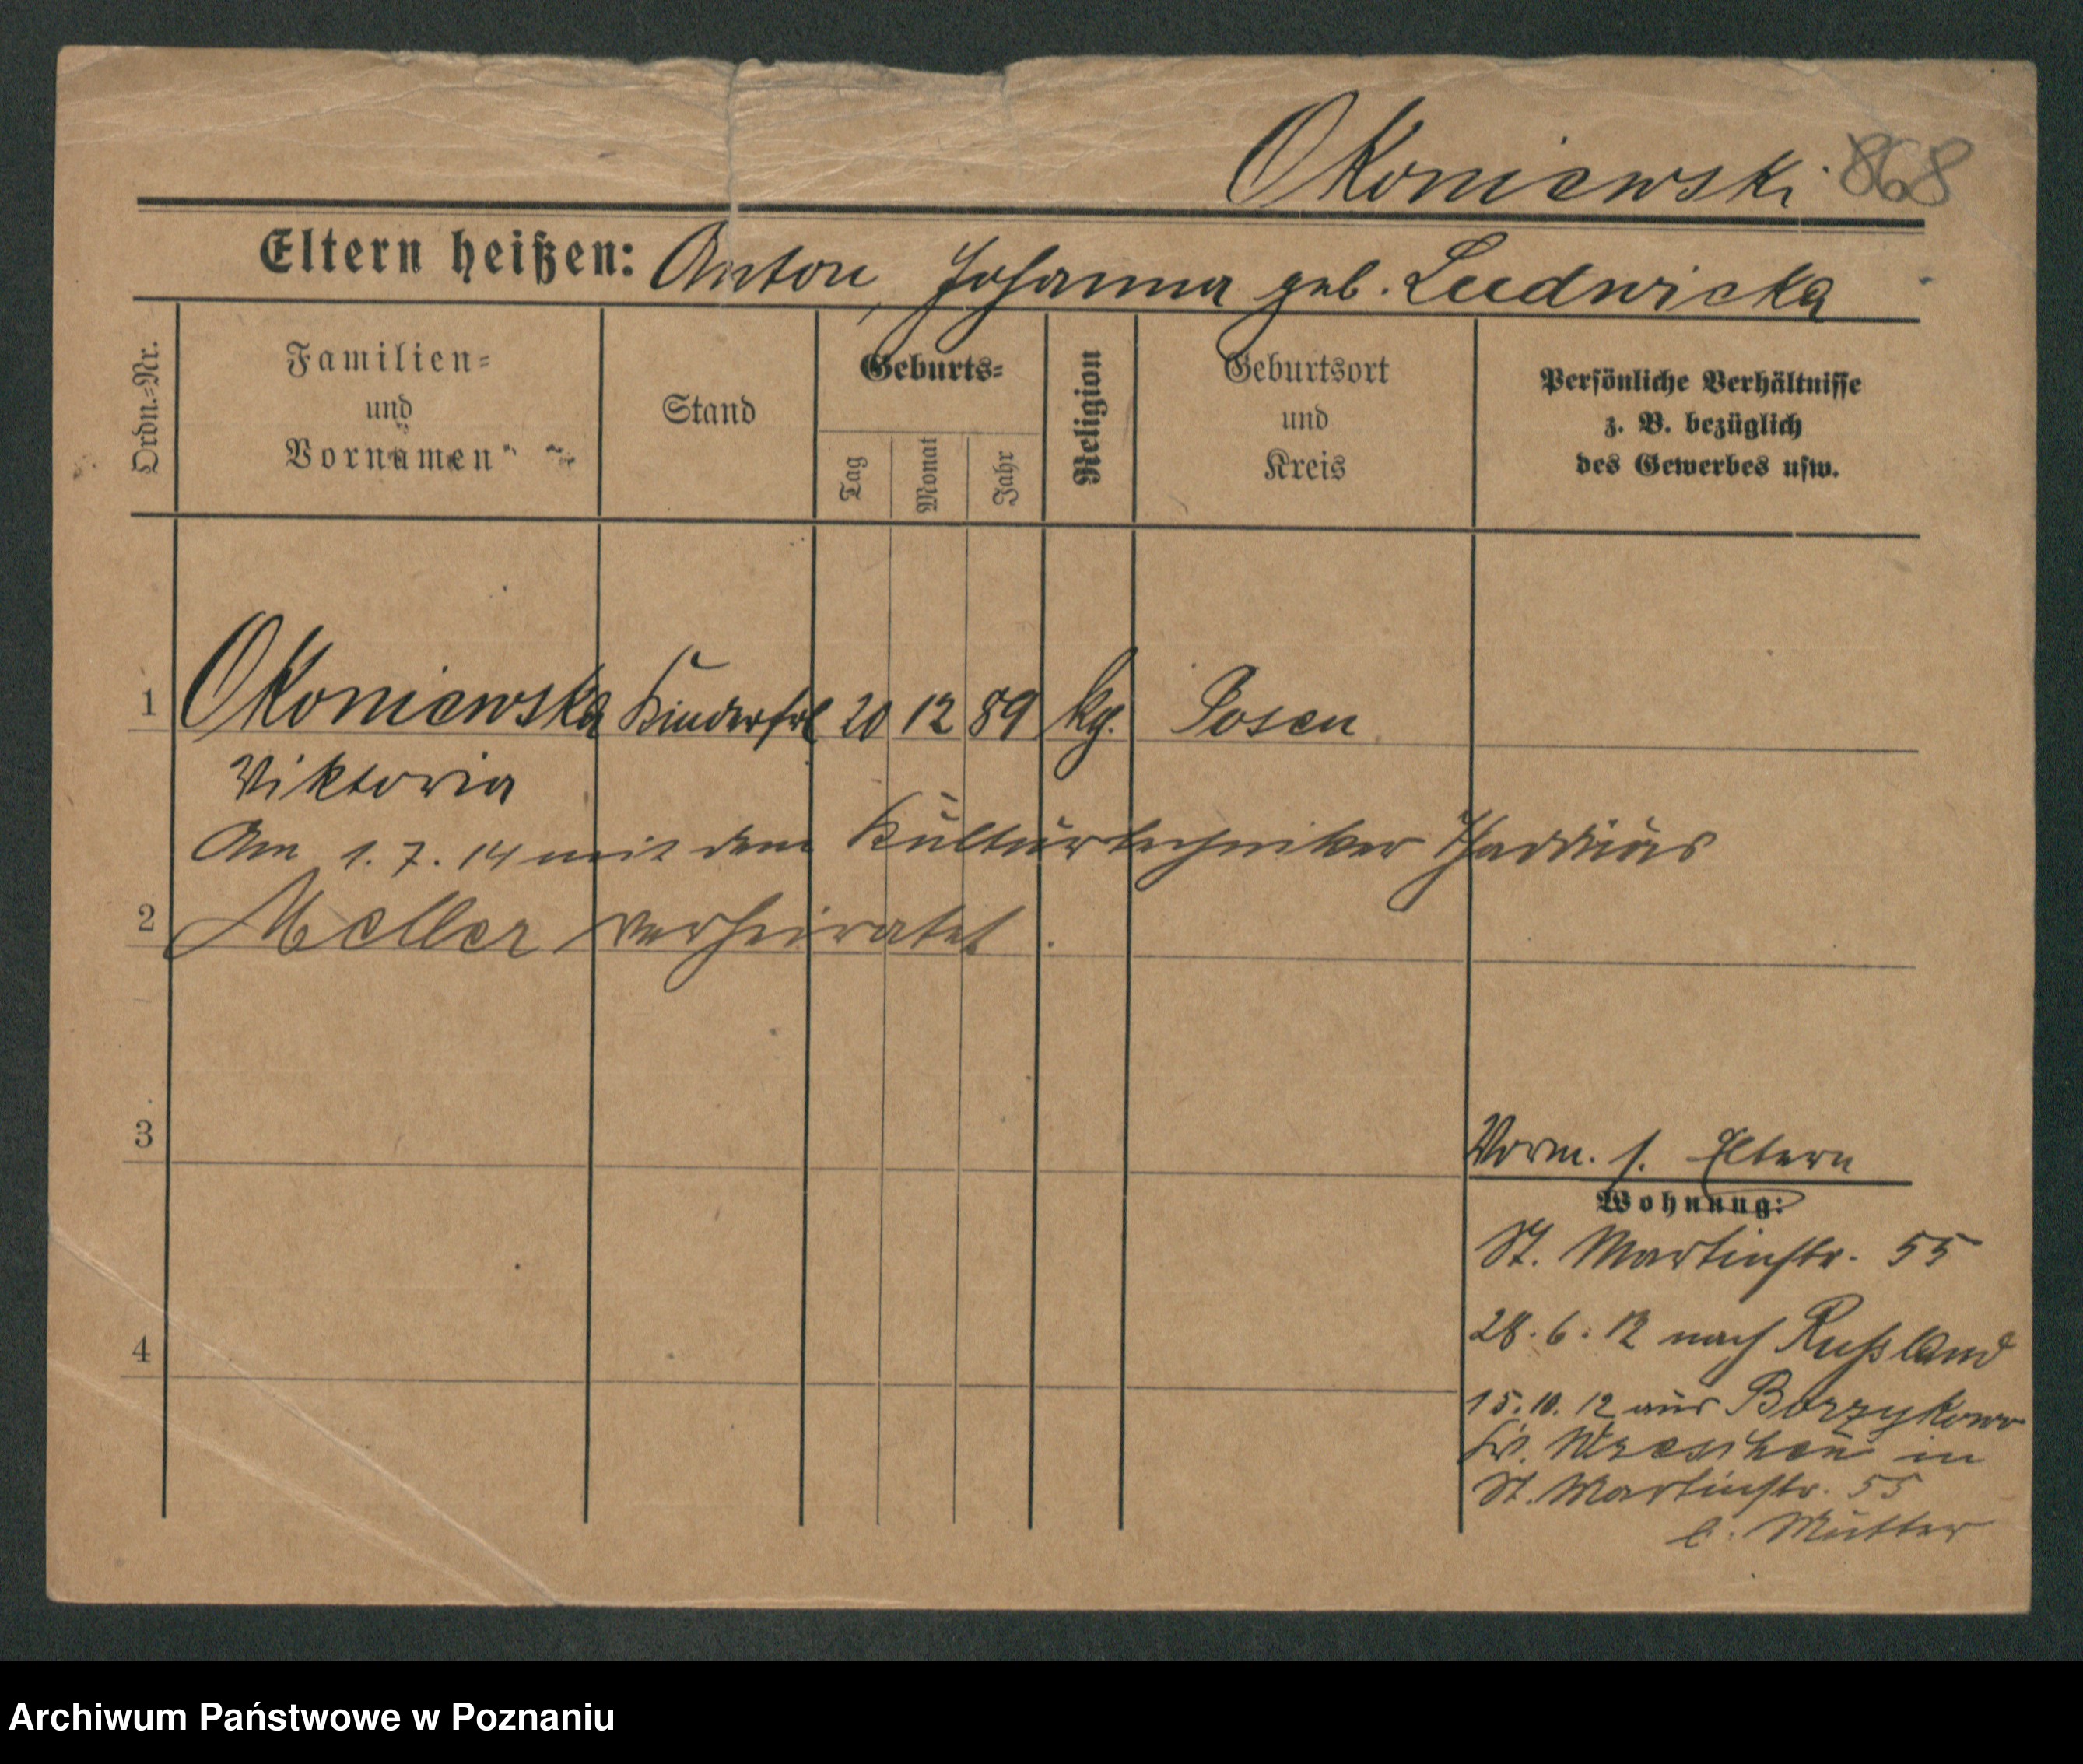 Okoniewski 868
Eltern heißen: Anton, Johanna geb. Ludwicka
Ordn.-Nr.
Familien-
und
Vornamen
Stand
Geburts-
Tag
Monat
Jahr
Religion
Geburtsort
und
Kreis
Persönliche Verhältnisse
z. B. bezüglich
des Gewerbes usw.
1 Okoniewska Kinderfrl 20 12 89 kg. Posen
Viktoria
Am 1.7.14 mit dem Kulturtechniker Thaddäus
2 Meller verheiratet.
3
Vorm. s. Eltern
Wohnung:
St. Martinstr. 55
28.6.12 nach Rußland
4
15.10.12 aus Borzykowo
Kr. Wreschen in
St. Martinstr. 55
b. Mutter
Archiwum Państwowe w Poznaniu